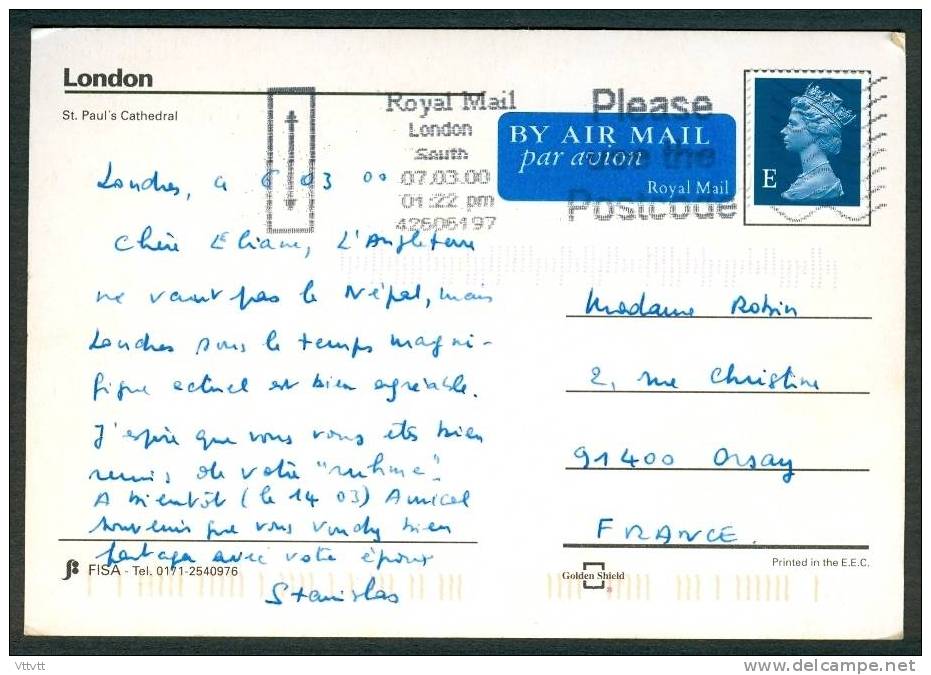 London
St. Paul's Cathedral
Royal Mail
London
South
07.03.00
01:22 pm
42606197
Please
use the
Postcode
BY AIR MAIL
par avion
Royal Mail
E
Londres, a 6 03 00
Chère Eliane, L'Angleterre
ne vaut pas le Népal, mais
Londres sous le temps magni-
fique actuel est bien agréable.
J'espère que vous vous êtes bien
remis de votre "rhume".
A bientôt (le 14 03) Amical
souvenir que vous voudrez bien
partager avec votre époux
Stanislas
Madame Robin
2, rue Christine
91400 Orsay
FRANCE.
FISA - Tel. 0171-2540976
Golden Shield
Printed in the E.E.C.
Vttvtt
www.delcampe.net